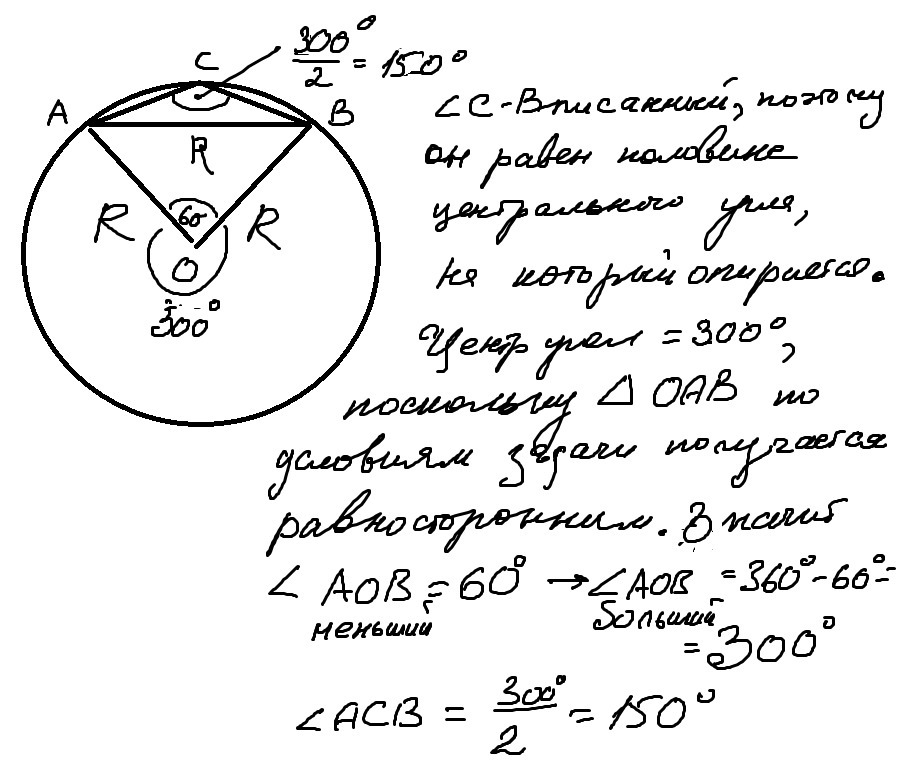 300°/2 = 150°
C
A
B
R
R
60
R
O
300°
∠C-Вписанный, поэтому
он равен половине
центрального угла,
на который опирается.
Центр угол = 300°,
поскольку △ OAB по
условиям задачи получается
равносторонним. Значит
∠ AOB = 60° → ∠AOB = 360° - 60° =
меньший больший
= 300°
∠ACB = 300°/2 = 150°